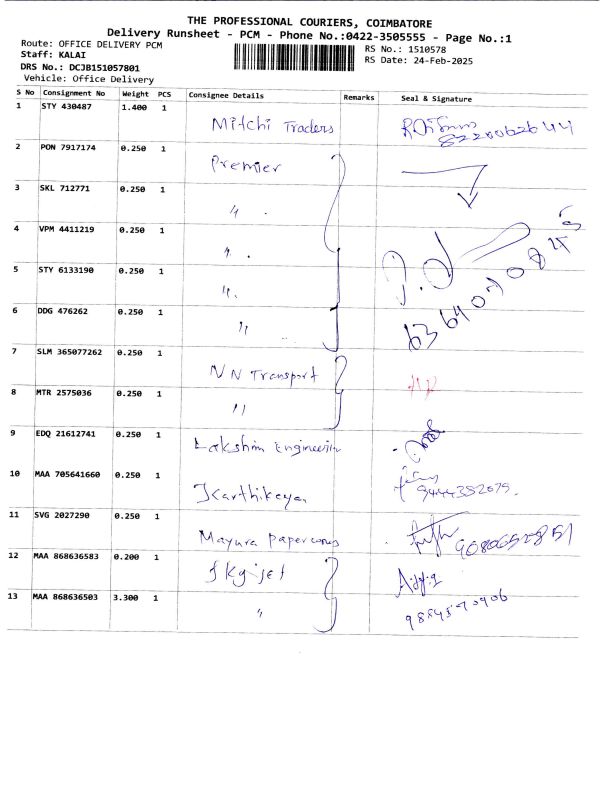 THE PROFESSIONAL COURIERS, COIMBATORE
Delivery Runsheet - PCM - Phone No.:0422-3505555 - Page No.:1
Route: OFFICE DELIVERY PCM
Staff: KALAI
DRS No.: DCJB151057801
Vehicle: Office Delivery
RS No.: 1510578
RS Date: 24-Feb-2025
S No Consignment No Weight PCS Consignee Details Remarks Seal & Signature
1 STY 430487 1.400 1 Mitchi Traders
2 PON 7917174 0.250 1 Premier
3 SKL 712771 0.250 1 "
4 VPM 4411219 0.250 1 "
5 STY 6133190 0.250 1 "
6 DDG 476262 0.250 1 "
7 SLM 365077262 0.250 1 NN Transport
8 MTR 2575036 0.250 1 "
9 EDQ 21612741 0.250 1 Lakshmi Engineerin
10 MAA 705641660 0.250 1 Karthikeyan
11 SVG 2027290 0.250 1 Mayura Paper
12 MAA 868636583 0.200 1
13 MAA 868636503 3.300 1 "